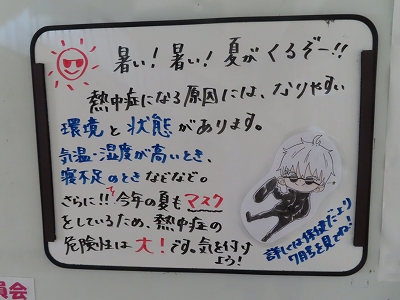 暑い！暑い！夏がくるぞー!!
熱中症になる原因には、なりやすい
環境と状態があります。
気温・湿度が高いとき、
寝不足のときなどなど。
さらに!!今年の夏もマスク
をしているため、熱中症の
危険性は大！です。気を付け
よう！
詳しくは保健だより
7月号を見てね！
員会